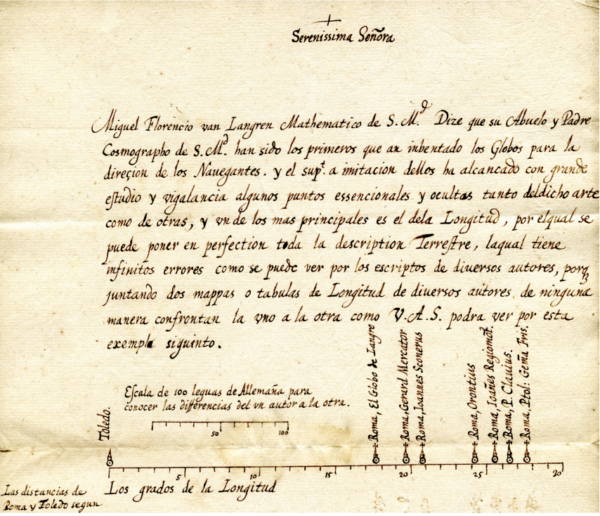 Serenissima Señora
Miguel Florencio van Langren Mathematico de S. M.d Dize que su Abuelo y Padre
Cosmographo de S. M.d han sido los primeros que an inbentado los Globos para la
direçion de los Nauegantes. y el sup.t a imitacion dellos ha alcancado con grande
estudio y vigalancia algunos puntos essencionales y ocultos tanto deldicho arte
como de otras, y vn de los mas principales es el dela Longitud, por elqual se
puede poner en perfection toda la description Terrestre, laqual tiene
infinitos errores como se puede ver por los escriptos de diuersos autores, porq
juntando dos mappas o tabulas de Longitud de diuersos autores de ninguna
manera confrontan la vno a la otra como V. A. S. podra ver por esta
exempla siguinto.
Escala de 100 leguas de Allemaña para
conocer las differencias del vn autor a la otra.
50 100
Toledo.
Roma, El Globo de Langre
Roma, Gerard Mercator
Roma, Ioannes Sconerus
Roma, Orontius
Roma, Ioañes Regiomoñt.
Roma, P. Clauius.
Roma, Ptol: Geña Fris.
5 10 15 20 25 20
Las distancias de
Roma y Toledo segun
Los grados de la Longitud